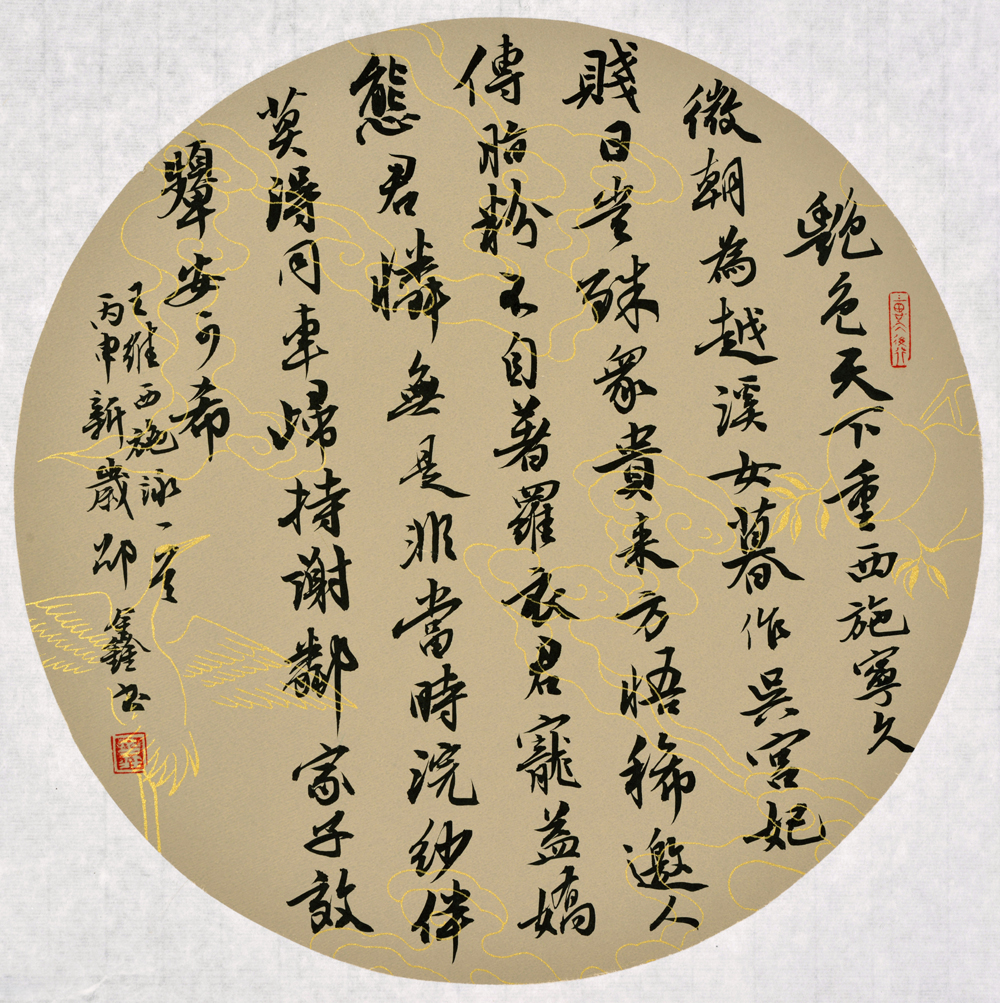 艷色天下重西施寧久
微朝為越溪女暮作吳宮妃
賤日豈殊眾貴来方悟稀邀人
傳脂粉不自著羅衣君寵益嬌
態君憐無是非當時浣紗伴
莫得同車歸持謝鄰家子效
顰安可希
王維西施詠一首
丙申新歲邵鑫書